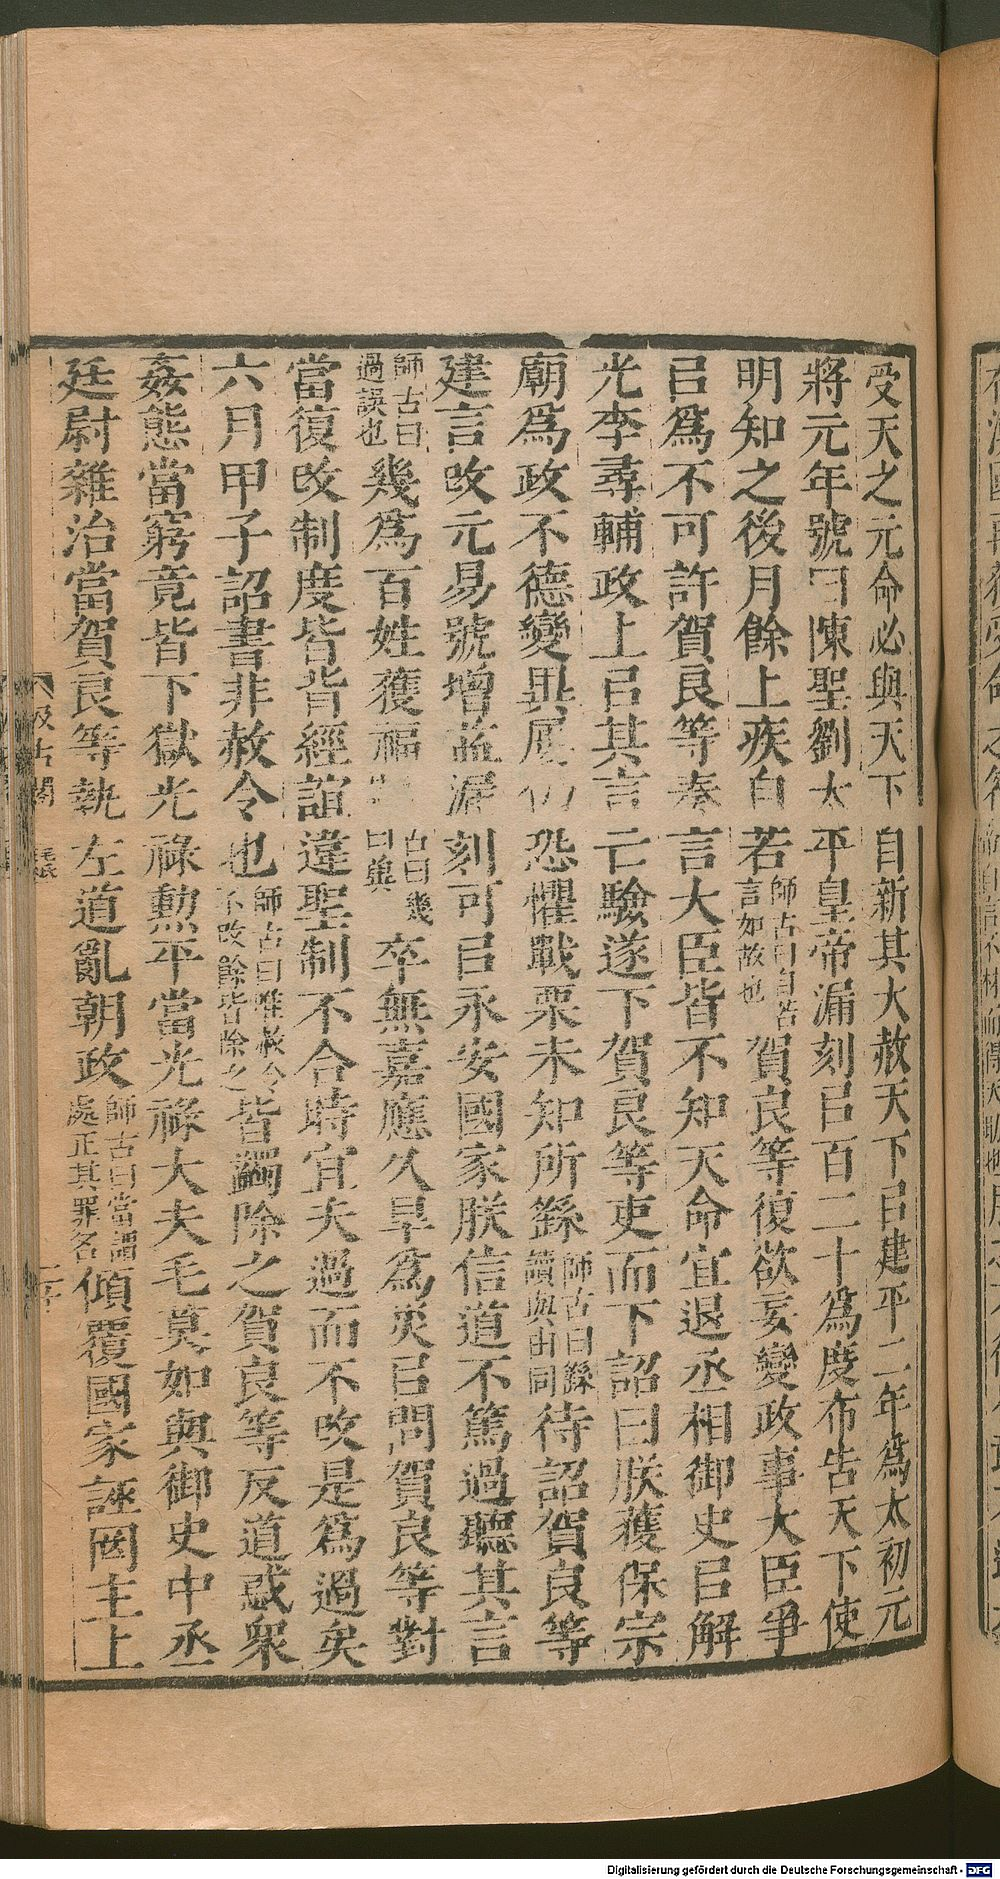 受天之元命必與天下自新其大赦天下㠯建平二年爲太初元
將元年號曰陳聖劉太平皇帝漏刻㠯百二十爲度布告天下使
明知之後月餘上疾自若師古曰自若言如故也賀良等復欲妄變政事大臣爭
㠯爲不可許賀良等奏言大臣皆不知天命宜退丞相御史㠯解
光李尋輔政上㠯其言亡驗遂下賀良等吏而下詔曰朕獲保宗
廟爲政不德變異屢仍恐懼戰栗未知所繇師古曰繇讀與由同待詔賀良等
建言改元易號增益漏刻可㠯永安國家朕信道不篤過聽其言
師古曰過誤也幾爲百姓獲福古曰幾曰冀卒無嘉應久旱爲災㠯問賀良等對
當復改制度皆背經誼違聖制不合時宜夫過而不改是爲過矣
六月甲子詔書非赦令也師古曰唯赦令不改餘皆除之皆蠲除之賀良等反道惑眾
姦態當窮竟皆下獄光祿勳平當光祿大夫毛莫如與御史中丞
廷尉雜治當賀良等執左道亂朝政師古曰當謂處正其罪名傾覆國家誣罔主上
汲古閣
毛氏
Digitalisierung gefördert durch die Deutsche Forschungsgemeinschaft - DFG